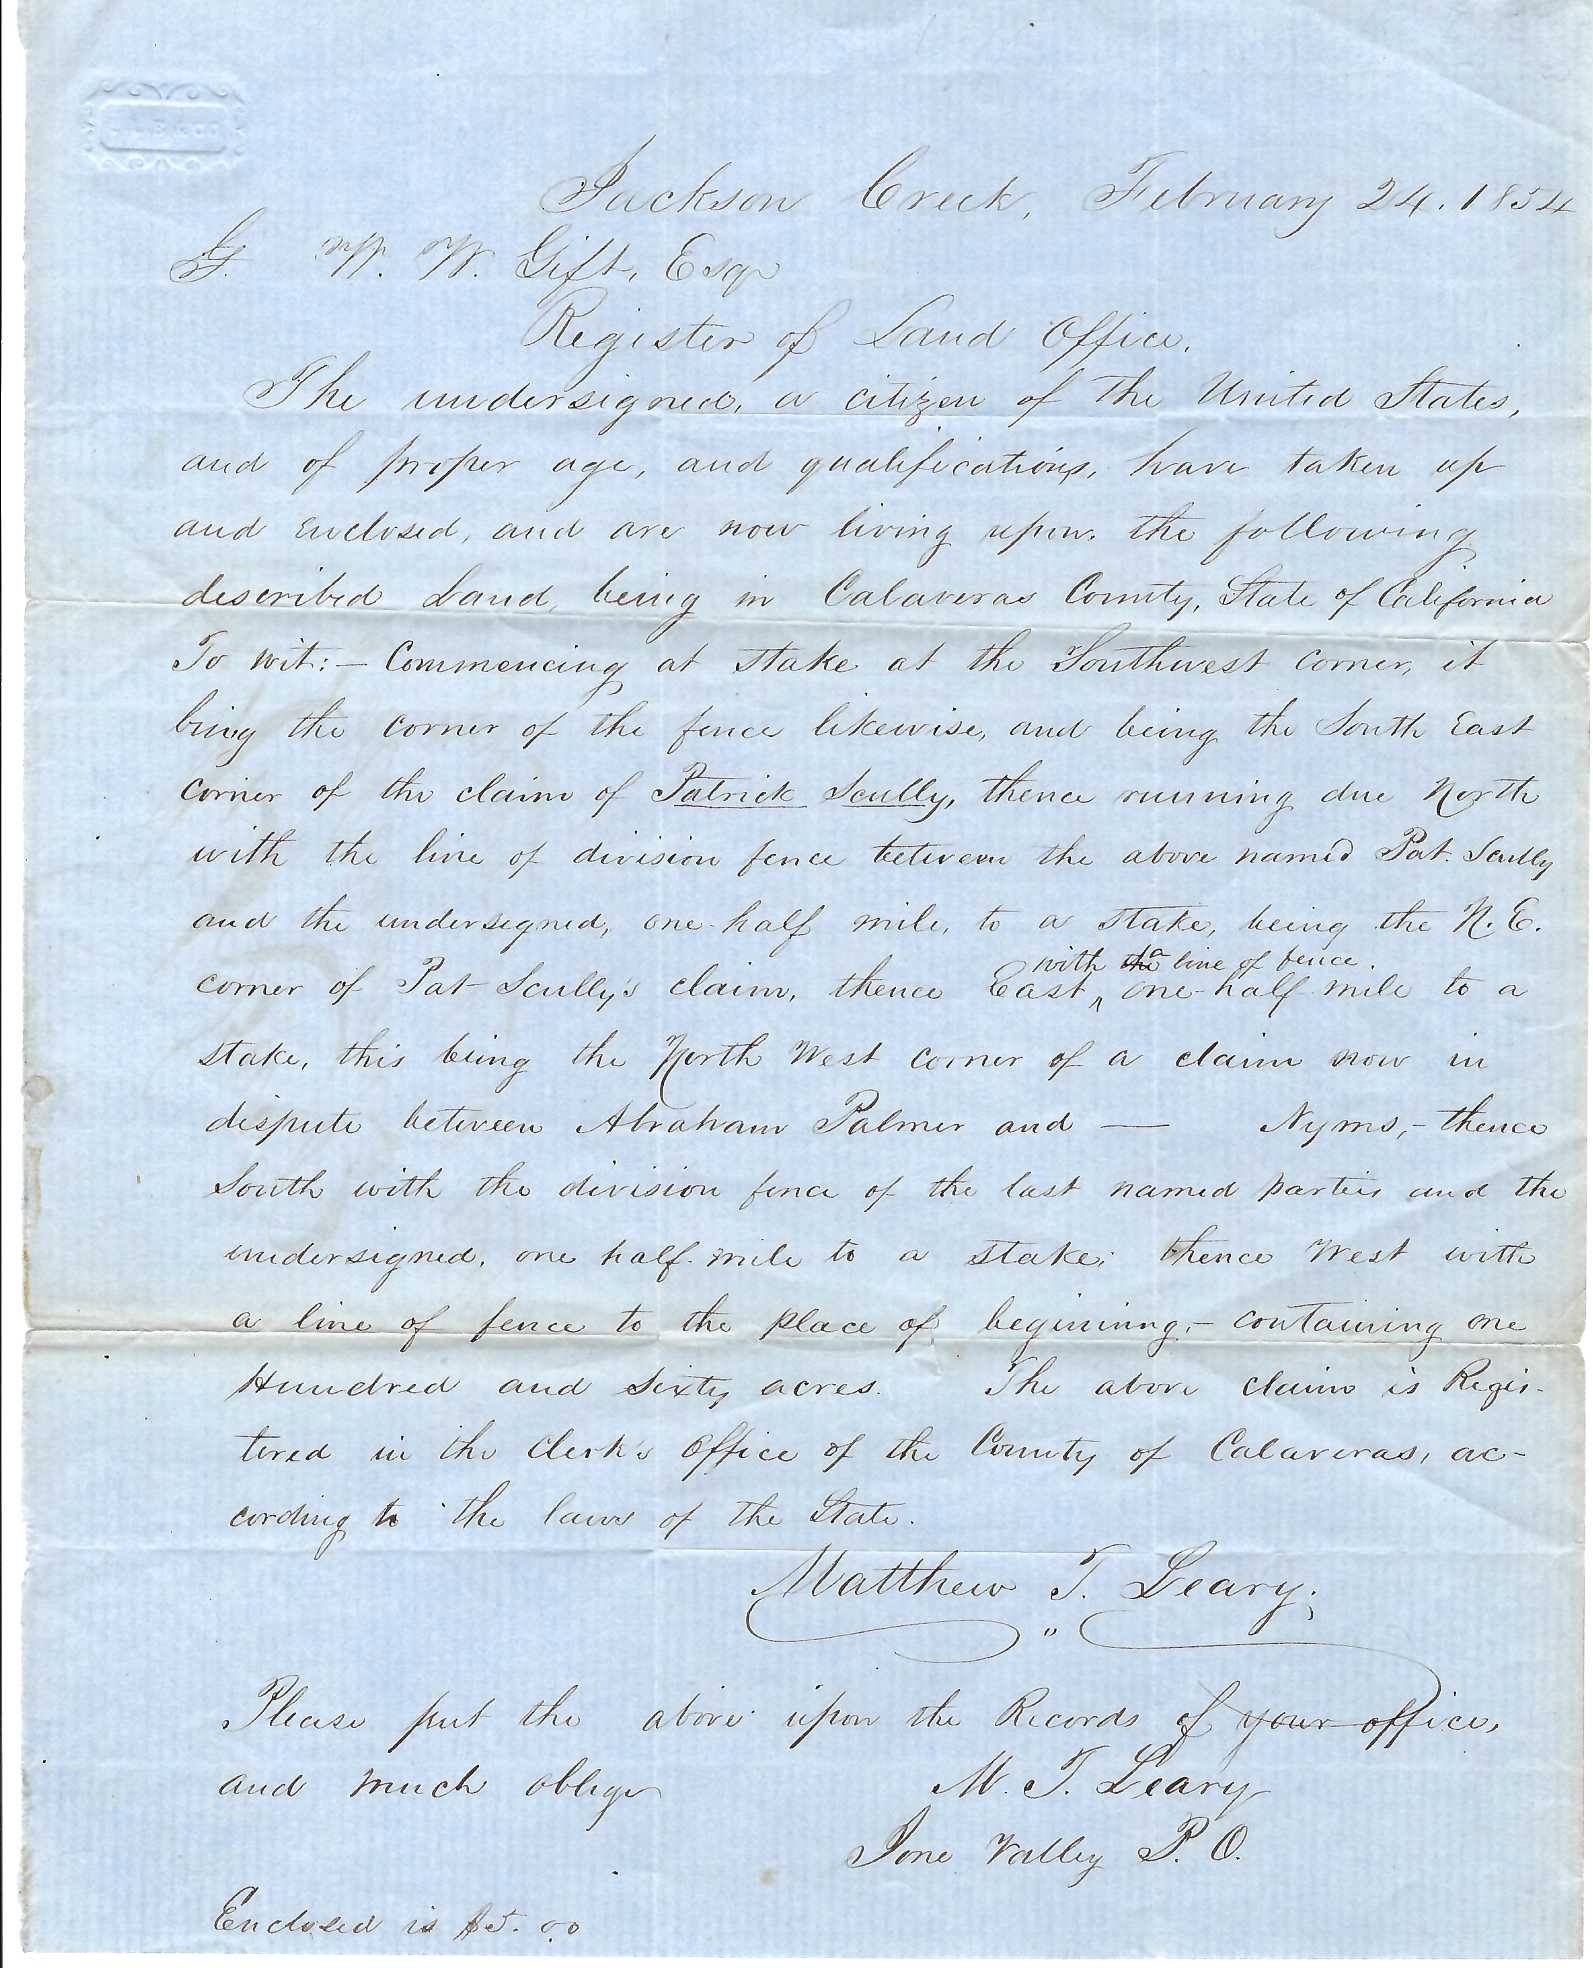 Jackson Creek, February 24. 1854
G. W. W. Gift, Esqr
Register of Land Office.
The undersigned, a citizen of the United States,
and of proper age, and qualifications, have taken up
and enclosed, and are now living upon the following
described Land, being in Calaveras County, State of California
To wit: — Commencing at stake at the Southwest corner, it
being the corner of the fence likewise, and being the South East
corner of the claim of Patrick Scully, thence running due North
with the line of division fence between the above named Pat. Scully
and the undersigned, one-half mile, to a stake, being the N. E.
with a line of fence.
corner of Pat Scully's claim, thence East ^ one-half mile to a
stake, this being the North West corner of a claim now in
dispute between Abraham Palmer and — Nyms, - thence
South with the division fence of the last named parties and the
undersigned, one half mile to a stake; thence West with
a line of fence to the place of begininng, - containing one
Hundred and sixty acres. The above claim is Regis-
tered in the Clerk's Office of the County of Calaveras, ac-
cording to the laws of the State.
Matthew T. Leary.
Please put the above upon the Records of your office,
and much oblige
M. T. Leary
Ione Valley P. O.
Enclosed is $5.00